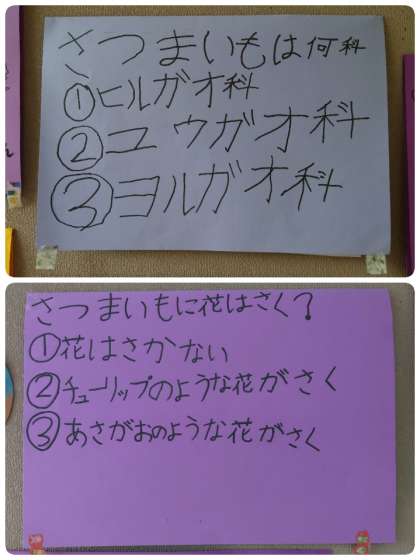 さつまいもは何科
①ヒルガオ科
②ユウガオ科
③ヨルガオ科
さつまいもに花はさく?
①花はさかない
②チューリップのような花がさく
③あさがおのような花がさく